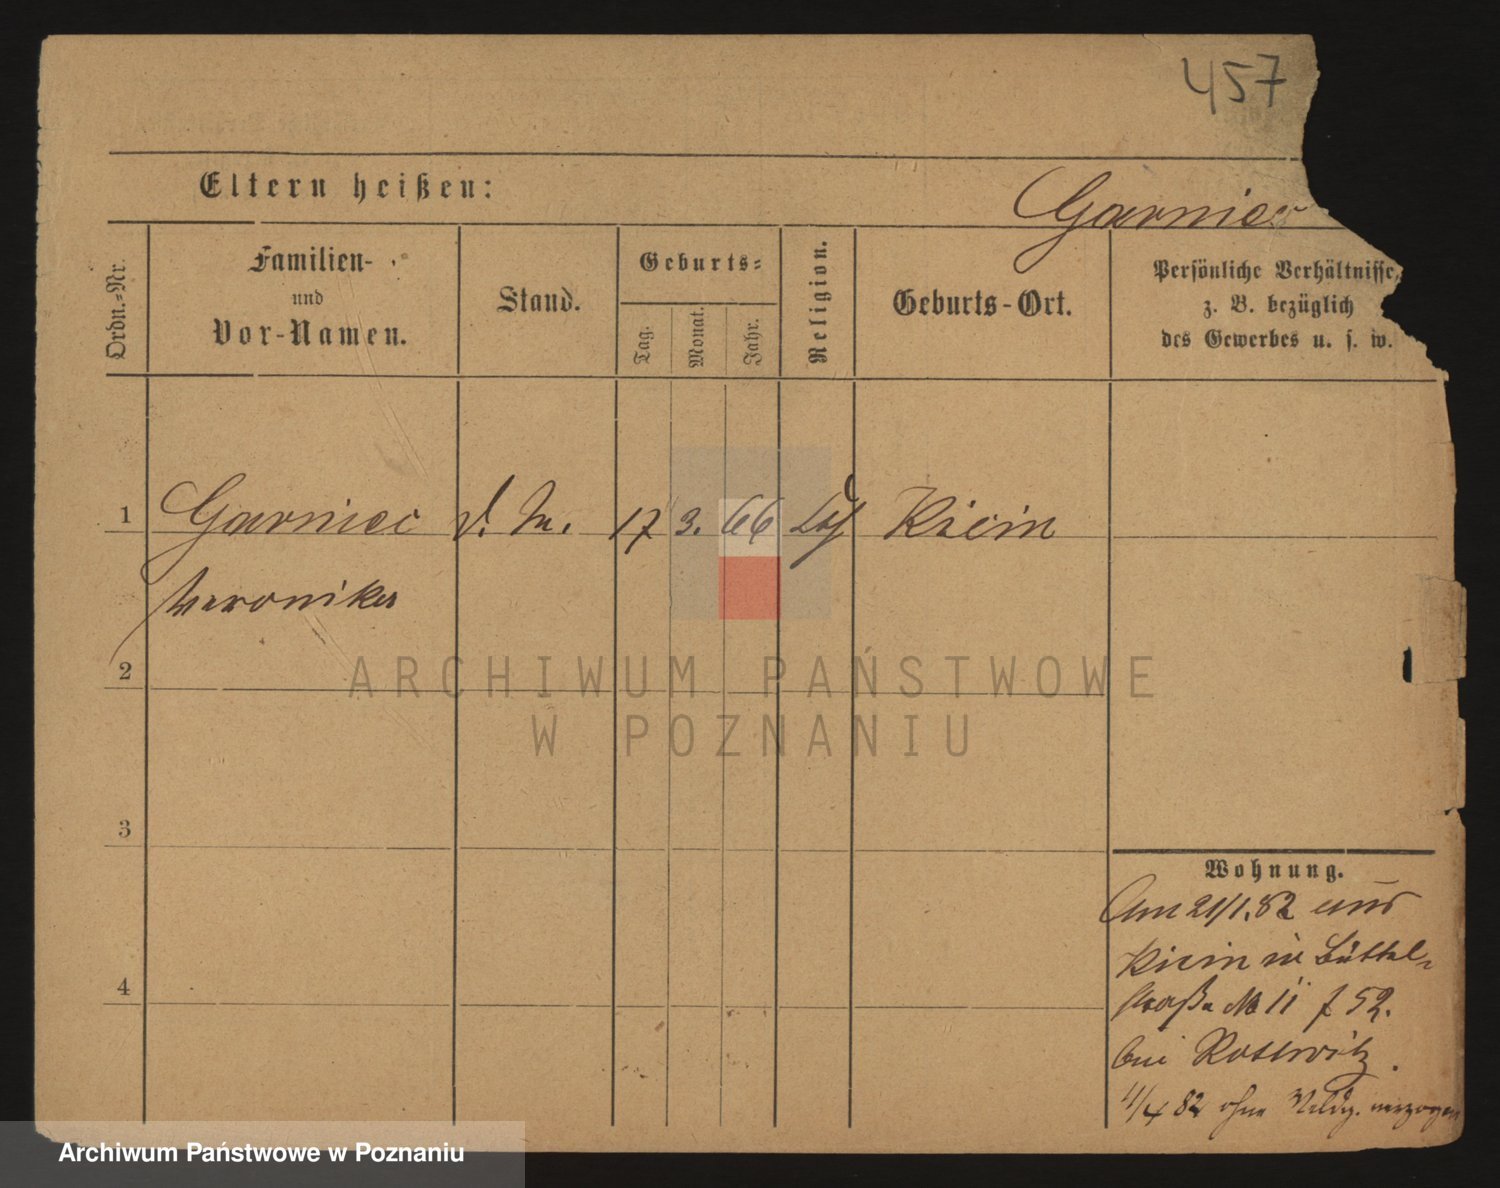 457
Eltern heißen:
Garniec
Ordn.-Nr.
Familien-
und
Vor-Namen.
Stand.
Geburts-
Tag.
Monat.
Jahr.
Religion.
Geburts-Ort.
Persönliche Verhältnisse,
z. B. bezüglich
des Gewerbes u. s. w.
1 Garniec d. M. 17 3. 66 Kicin
Veronika
2
ARCHIWUM PAŃSTWOWE
W POZNANIU
3
4
Wohnung.
Am 21/1.82 aus
Kicin in Büttel-
straße No 11 f 52.
bei
4/4 82 ohne Meldg. verzogen
Archiwum Państwowe w Poznaniu